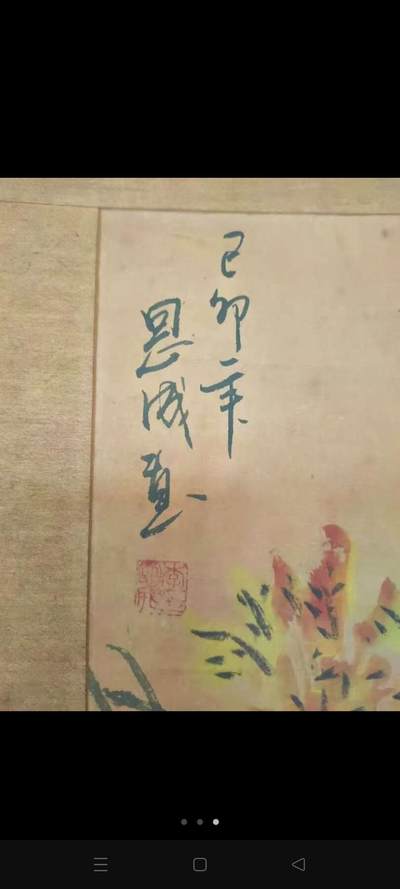 己卯年
恩成画